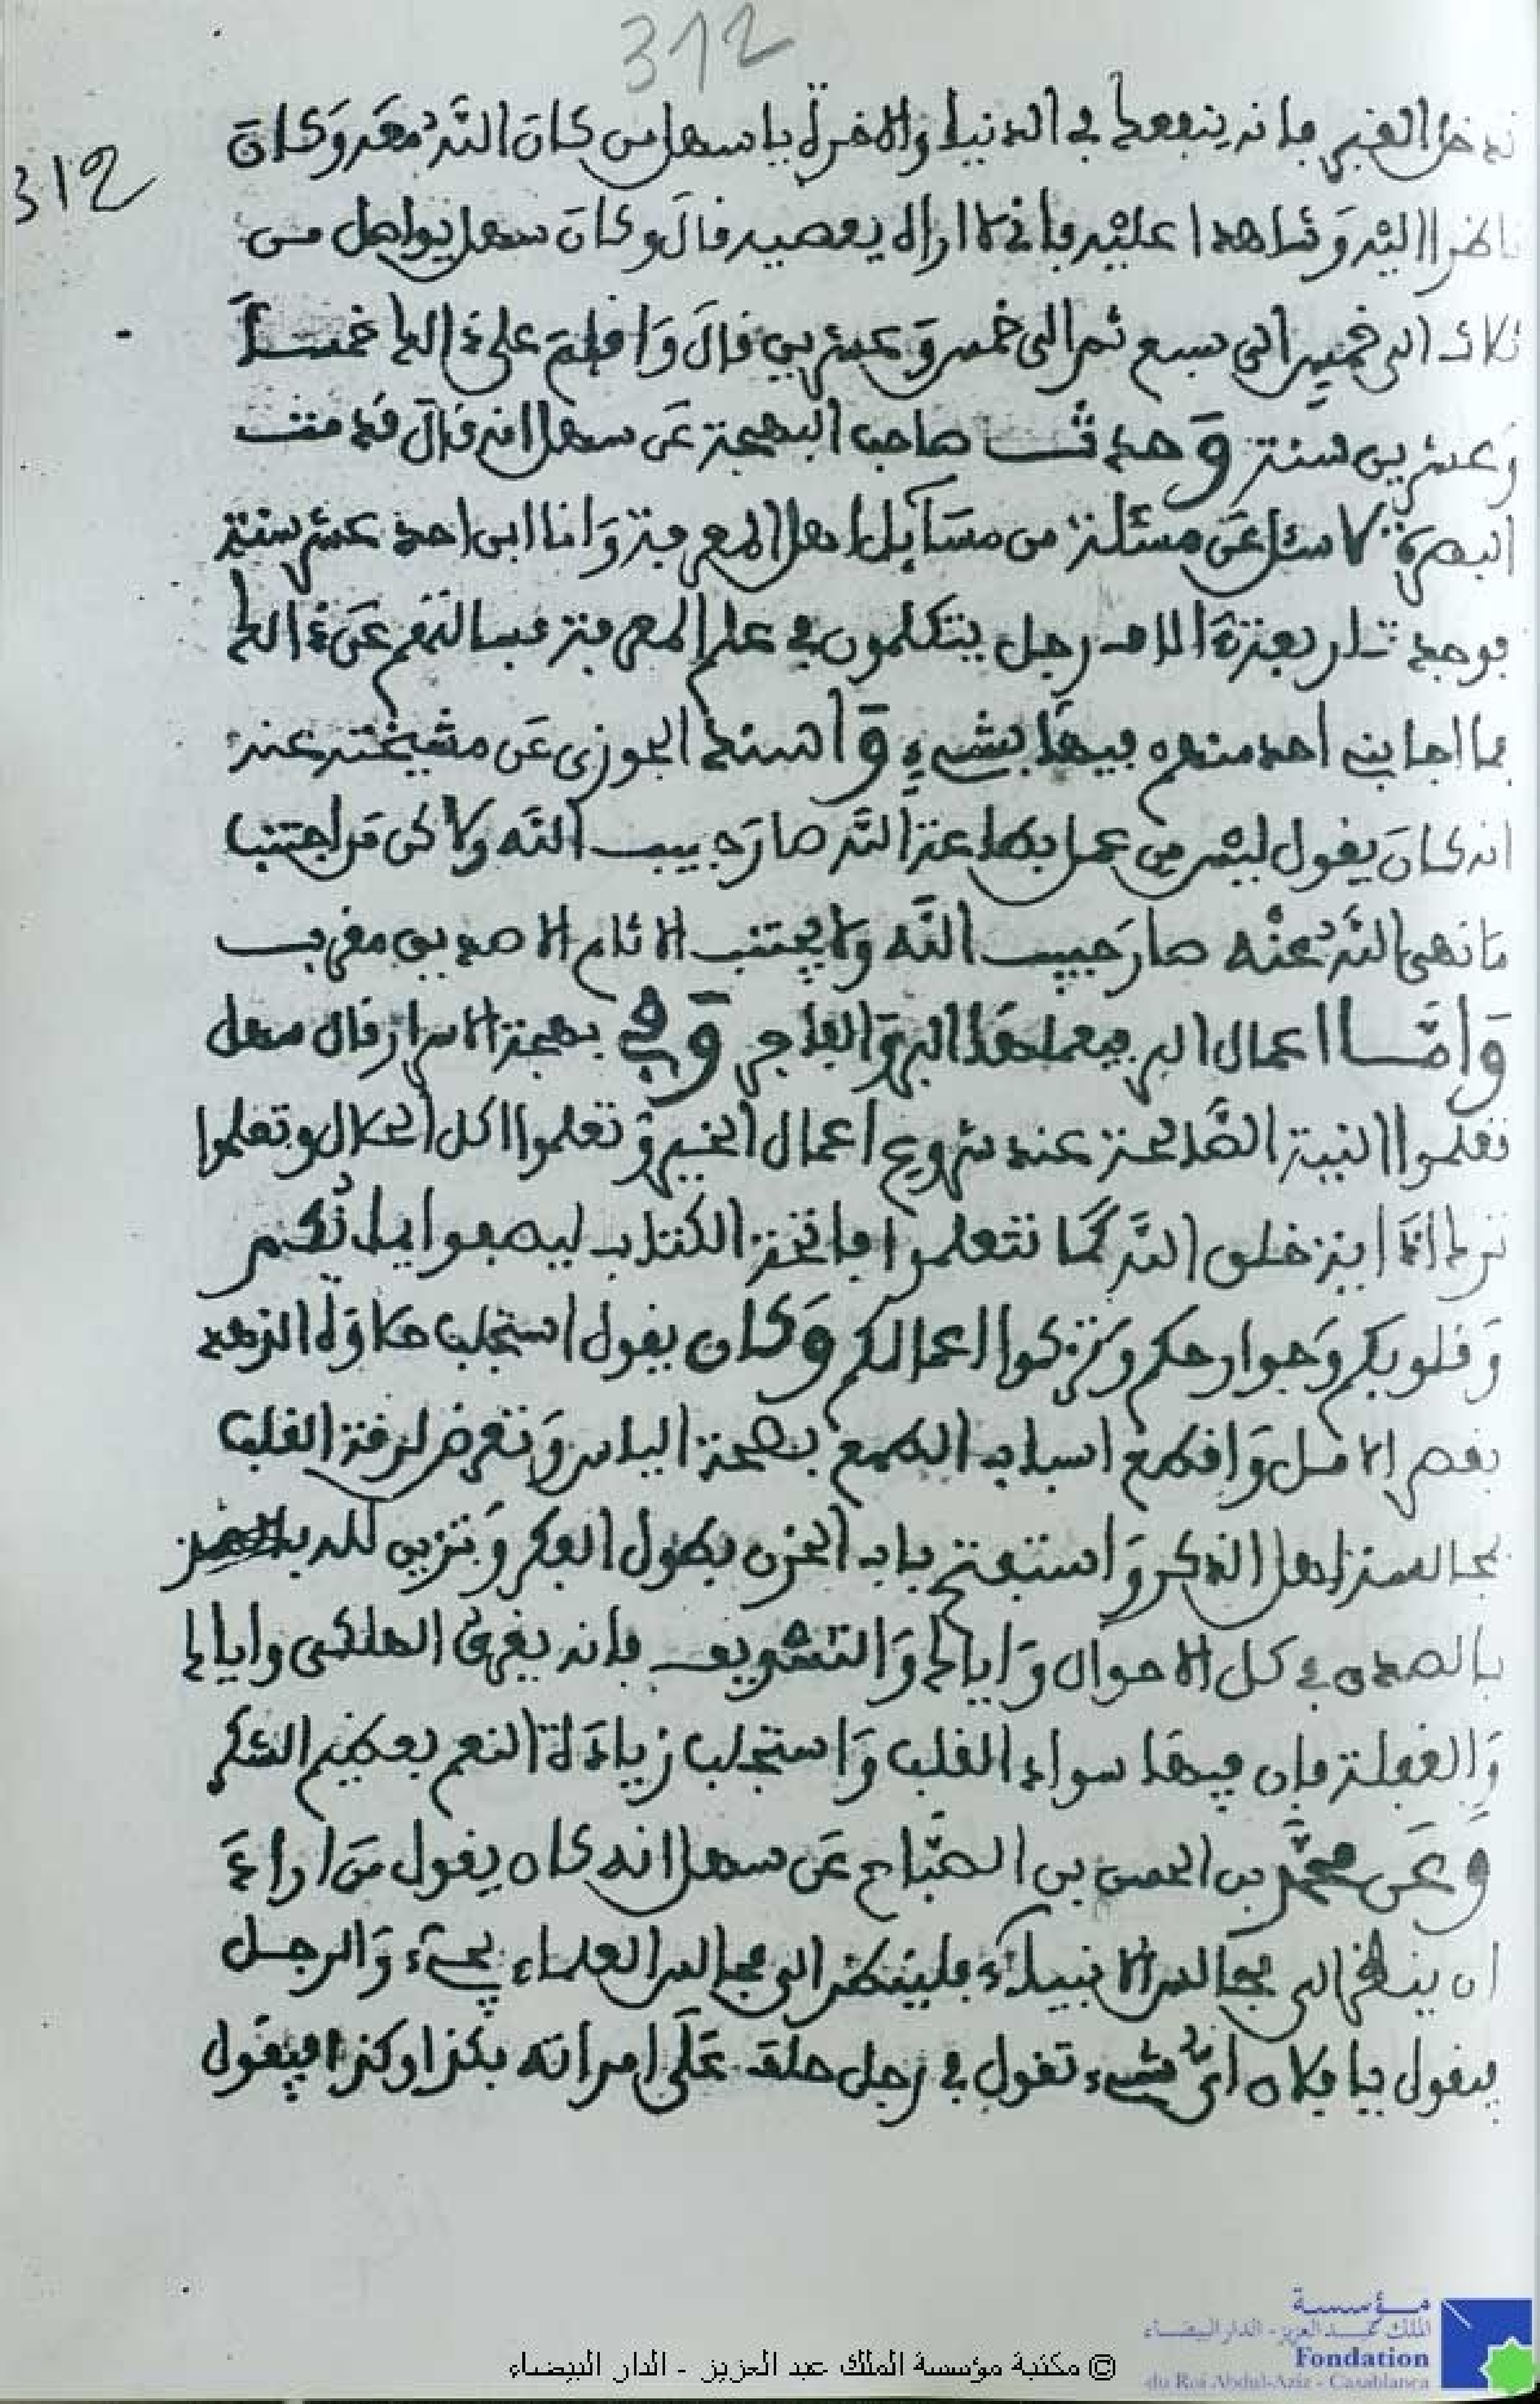 312
312
تدخل القبر فإنه ينفعك في الدنيا والاخرة يا سهل من كان اللهُ معه وَكانَ
ناظرا اليْه وَشاهدا عليْه فإذا اراه يعصيه قالَ وكانَ سهل يواصل من
ثلاث الى خمس الى سبع ثم الى خمس وَعشرين قالَ وَاقامَ على ذالك خمساً
وَعشرين سَنة وَحدثنا صاحب البهجة عَن سهل انه قالَ قدمت
البصرة لاسئل عَن مسئلة من مسَآيل اهل المعرفة وَانا ابن احد عشر سنة
فوجدت اربعة الاف رجل يتكلمون في علم المعرفة فسالتهم عَن ذالك
فما اجابني احد منهم فيهَا بشيءٍ وَاسند الجوزي عَن مشيخته عنه
انه كانَ يقول ليْس من عمل بطاعة الله صارَ حبيب الله ولاكن من اجتنب
مَا نهى اللهُ عنْه صارَ حبيب الله ولا يجتنب الاثام الا صديق مقرب
وَامّا اعمال البر فيعملهَا البر وَالفاجر وَفي بهجة الاسرار قال سهل
تعلموا النية الصَّالحة عند شروع اعمال الخير وَتعلموا اكل الحلال وتعلموا
ترك اذَاية خلق الله كمَا تتعلموا فاتحة الكتاب ليصفوا ايمانُكم
وَقلوبكم وَجوارحكم وَتزكوا اعمالكم وَكان يقول استجلب حلاوَة الزهد
بقصر الامل وَاقطع اسباب الطمع بصحة الياس وَتعرض لرقة القلب
بمجالسة اهل الذكر وَاستفتح باب الحزن بطول الفكر وَتزين لله
بالصدق في كل الاحوال وَاياك وَالتسْويف فإنه يغرق الهلكى واياك
وَالغفلة فإن فيهَا سواد القلب وَاستجلب زيادَة النعم بعظيم الشكر
وَعَن محمَّد بن الحسن بن الصبّاح عَن سهل انه كان يقول مَن ارادَ
ان ينظر الى مجَالس الانبياءِ فلينظر الى مجالس العلماء يجيء وَالرجل
فيقول يا فلان ايُّ شيء تقول في رجل حلف عَلَى امراته بكذا وكذا فيقول
مؤسسة
الملك عبد العزيز - الدار البيضاء
Fondation
du Roi Abdul-Aziz - Casablanca
© مكتبة مؤسسة الملك عبد العزيز - الدار البيضاء